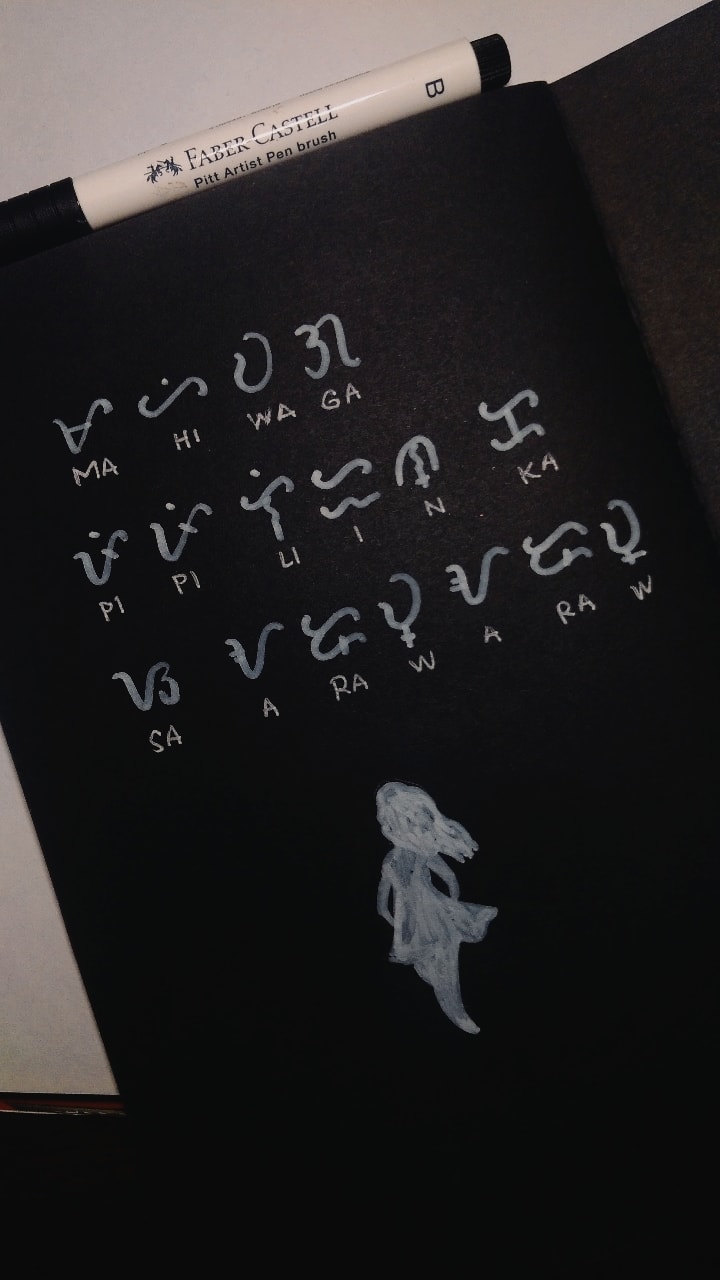 B
FABER-CASTELL
Pitt Artist Pen brush
ᜋ ᜑᜒ ᜏ ᜄ
MA HI WA GA
ᜉᜒ ᜉᜒ ᜎᜒ ᜁ ᜈ᜔ ᜃ
PI PI LI I N KA
ᜐ ᜀ ᜍ ᜏ᜔ ᜀ ᜍ ᜏ᜔
SA A RA W A RA W